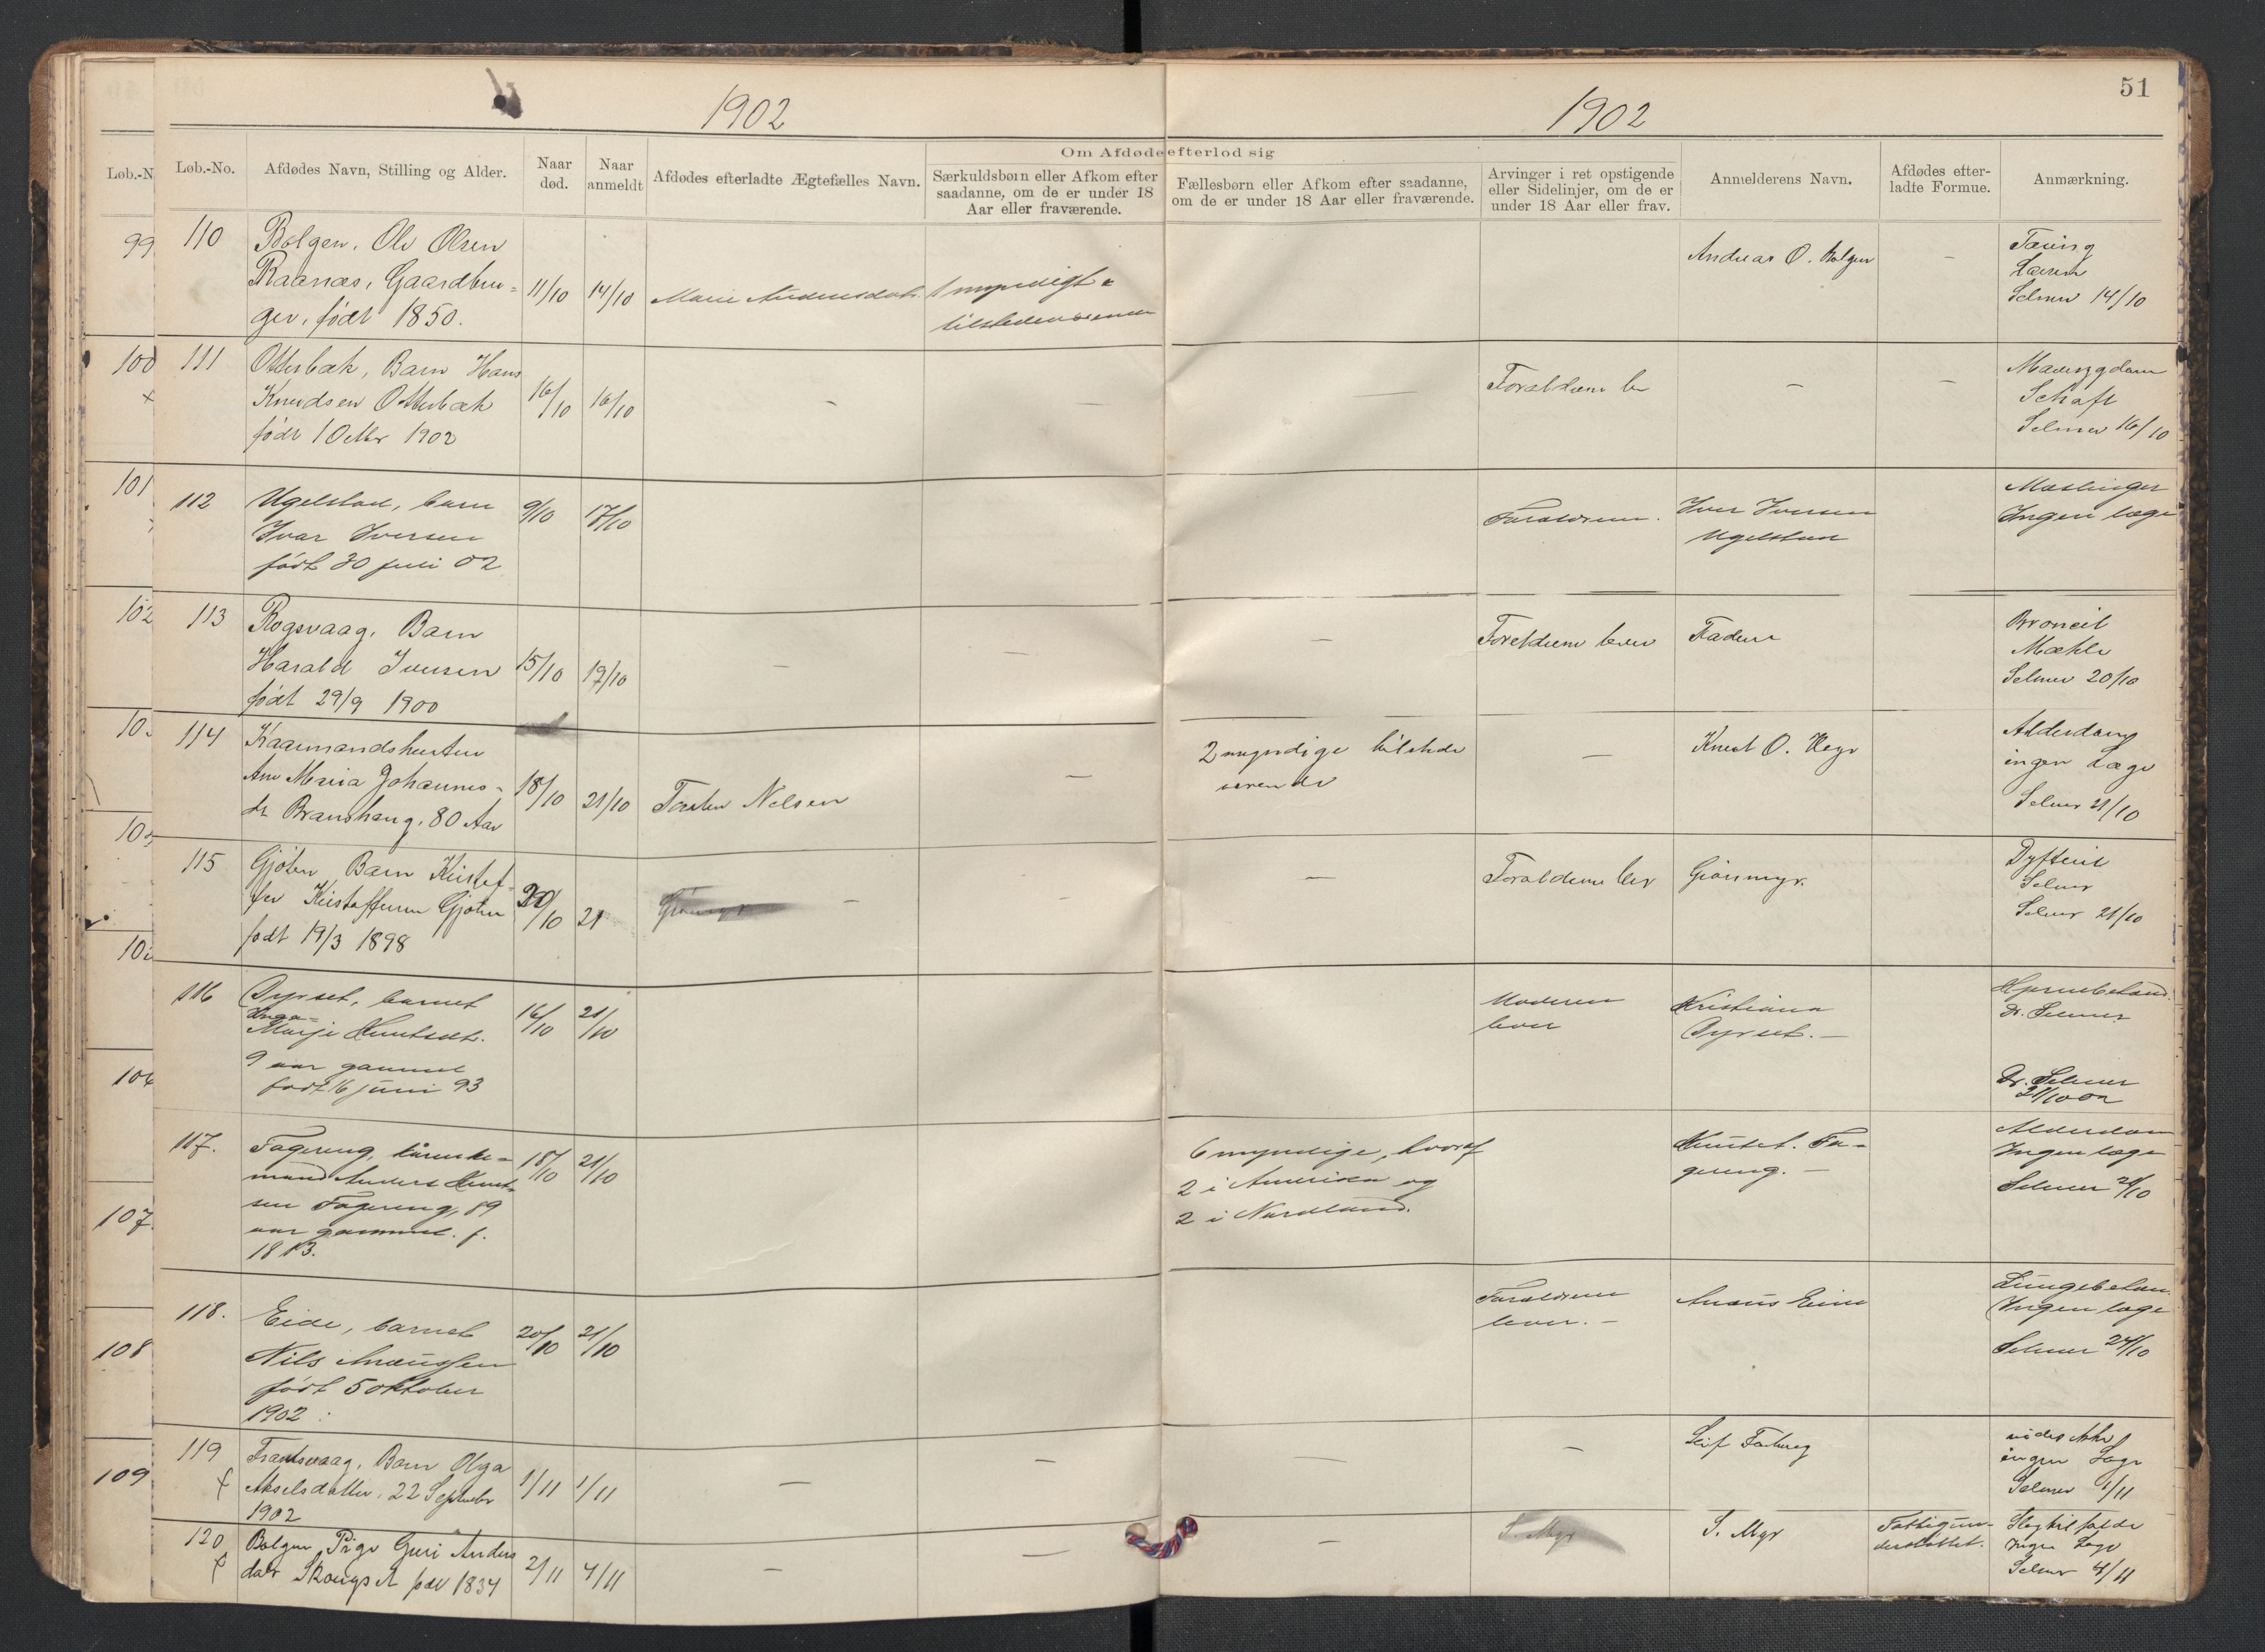 51
1902
1902
Løb.-N
Løb.-No.
Afdødes Navn, Stilling og Alder.
Naar død.
Naar anmeldt
Afdødes efterladte Ægtefælles Navn.
Om Afdøde efterlod sig
Særkuldsbørn eller Afkom efter saadanne, om de er under 18 Aar eller fraværende.
Fællesbørn eller Afkom efter saadanne, om de er under 18 Aar eller fraværende.
Arvinger i ret opstigende eller Sidelinjer, om de er under 18 Aar eller frav.
Anmelderens Navn.
Afdødes efterladte Formue.
Anmærkning.
99
100
101
102
104
107
108
109
110
Bolgen, Ole Olsen
Raanæs, Gaardbru-
ger, født 1850.
11/10
14/10
Marie
1 myndigt
tilstedeværende
Andreas O. Bolgen
–
Tæring
Selmer 14/10
111
Otterbæk, Barn Hans
Knudsen Otterbæk
født 1 Oktbr 1902
16/10
16/10
–
–
–
Forældrene lev
–
–
Selmer 16/10
112
Ugelstad, barn
Ivar Iversen
født 30 juli 02
9/10
17/10
Forældrene.
Iver Iversen
Ugelstad
Mæslinger
Ingen læge
113
Rogsvaag, Barn
Harald Iversen
født 29/9 1900
15/10
17/10
–
–
–
Forældrene lever
Faderen
Mæhle
Selmer 20/10
114
Kaarmandshustru
Ane Maria Johannes-
dr Branshaug, 80 Aar
18/10
21/10
Torsten Nelsen
–
2 myndige tilstede
værende
–
Knut O.
Alderdom
ingen Læge
Selmer 21/10
115
Gjøten Barn Kristof-
fer Kristoffersen Gjøten
født 19/3 1898
20/10
21
–
–
–
Forældrene lev
Grønmyr.
Dyfterit
Selmer
Selmer 21/10
116
Dyrset, barnet
Inga-
Marje Knutsdt.
9 aar gammel
født 16 juni 93
16/10
21/10
Moderen
lever
Kristiana
Dyrset. –
Hjernebetænd.
Dr. Selmer
Dr. Selmer
21/10 02
117.
Fagereng, kårmand
Anders Knut-
sen Fagereng, 89
aar gammel. f.
1813.
18/10
21/10
6 myndige, hvoraf
2 i Amerika og
2 i Nordland.
Knut Fa-
gereng. –
Alderdom
Ingen læge
Selmer 21/10
118.
Eide, barnet
Nils Anæussen
født 5 oktober
1902
20/10
21/10
Forældrene
lever. –
Anæus Eide
Lungebetæn.
Ingen læge
Selmer 21/10
119
Frantsvaag, Barn Olga
Akselsdatter, 22 September
1902
1/11
1/11
–
–
–
–
Leif Farberg
vides ikke
ingen Læge
Selmer 1/11
120
Bolgen Pige Guri Anders
datr Skougset født 1834
2/11
4/11
–
–
–
S. Myr
S. Myr
Fattigun-
derstøttet.
Slagtilfælde
Ingen Læge
Selmer 4/11